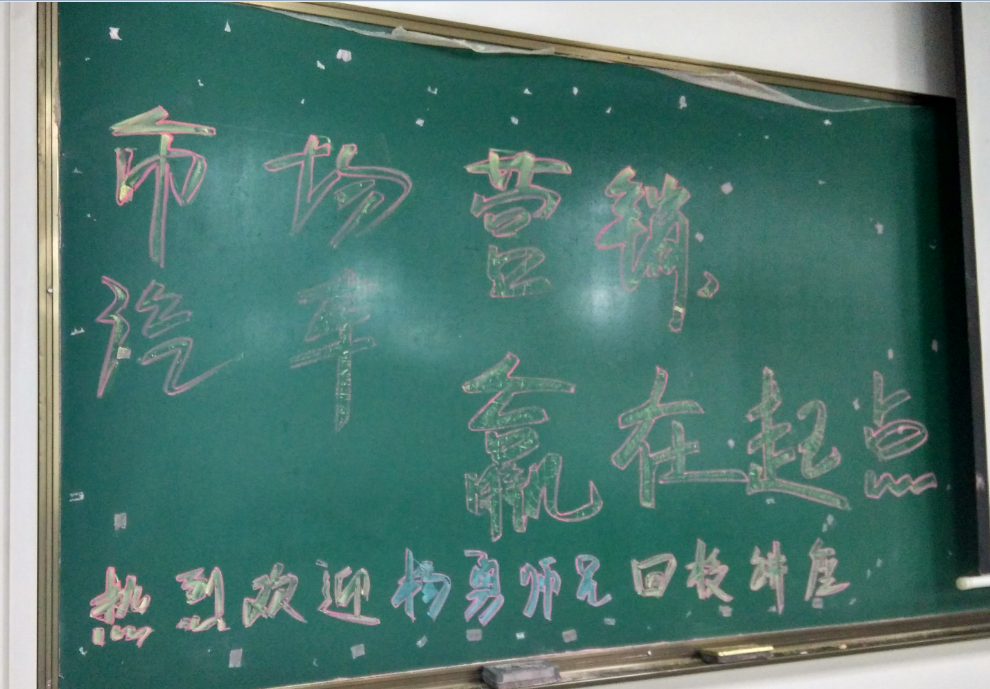 市场营销、
汽车
赢在起点
热烈欢迎杨勇师兄回校讲座